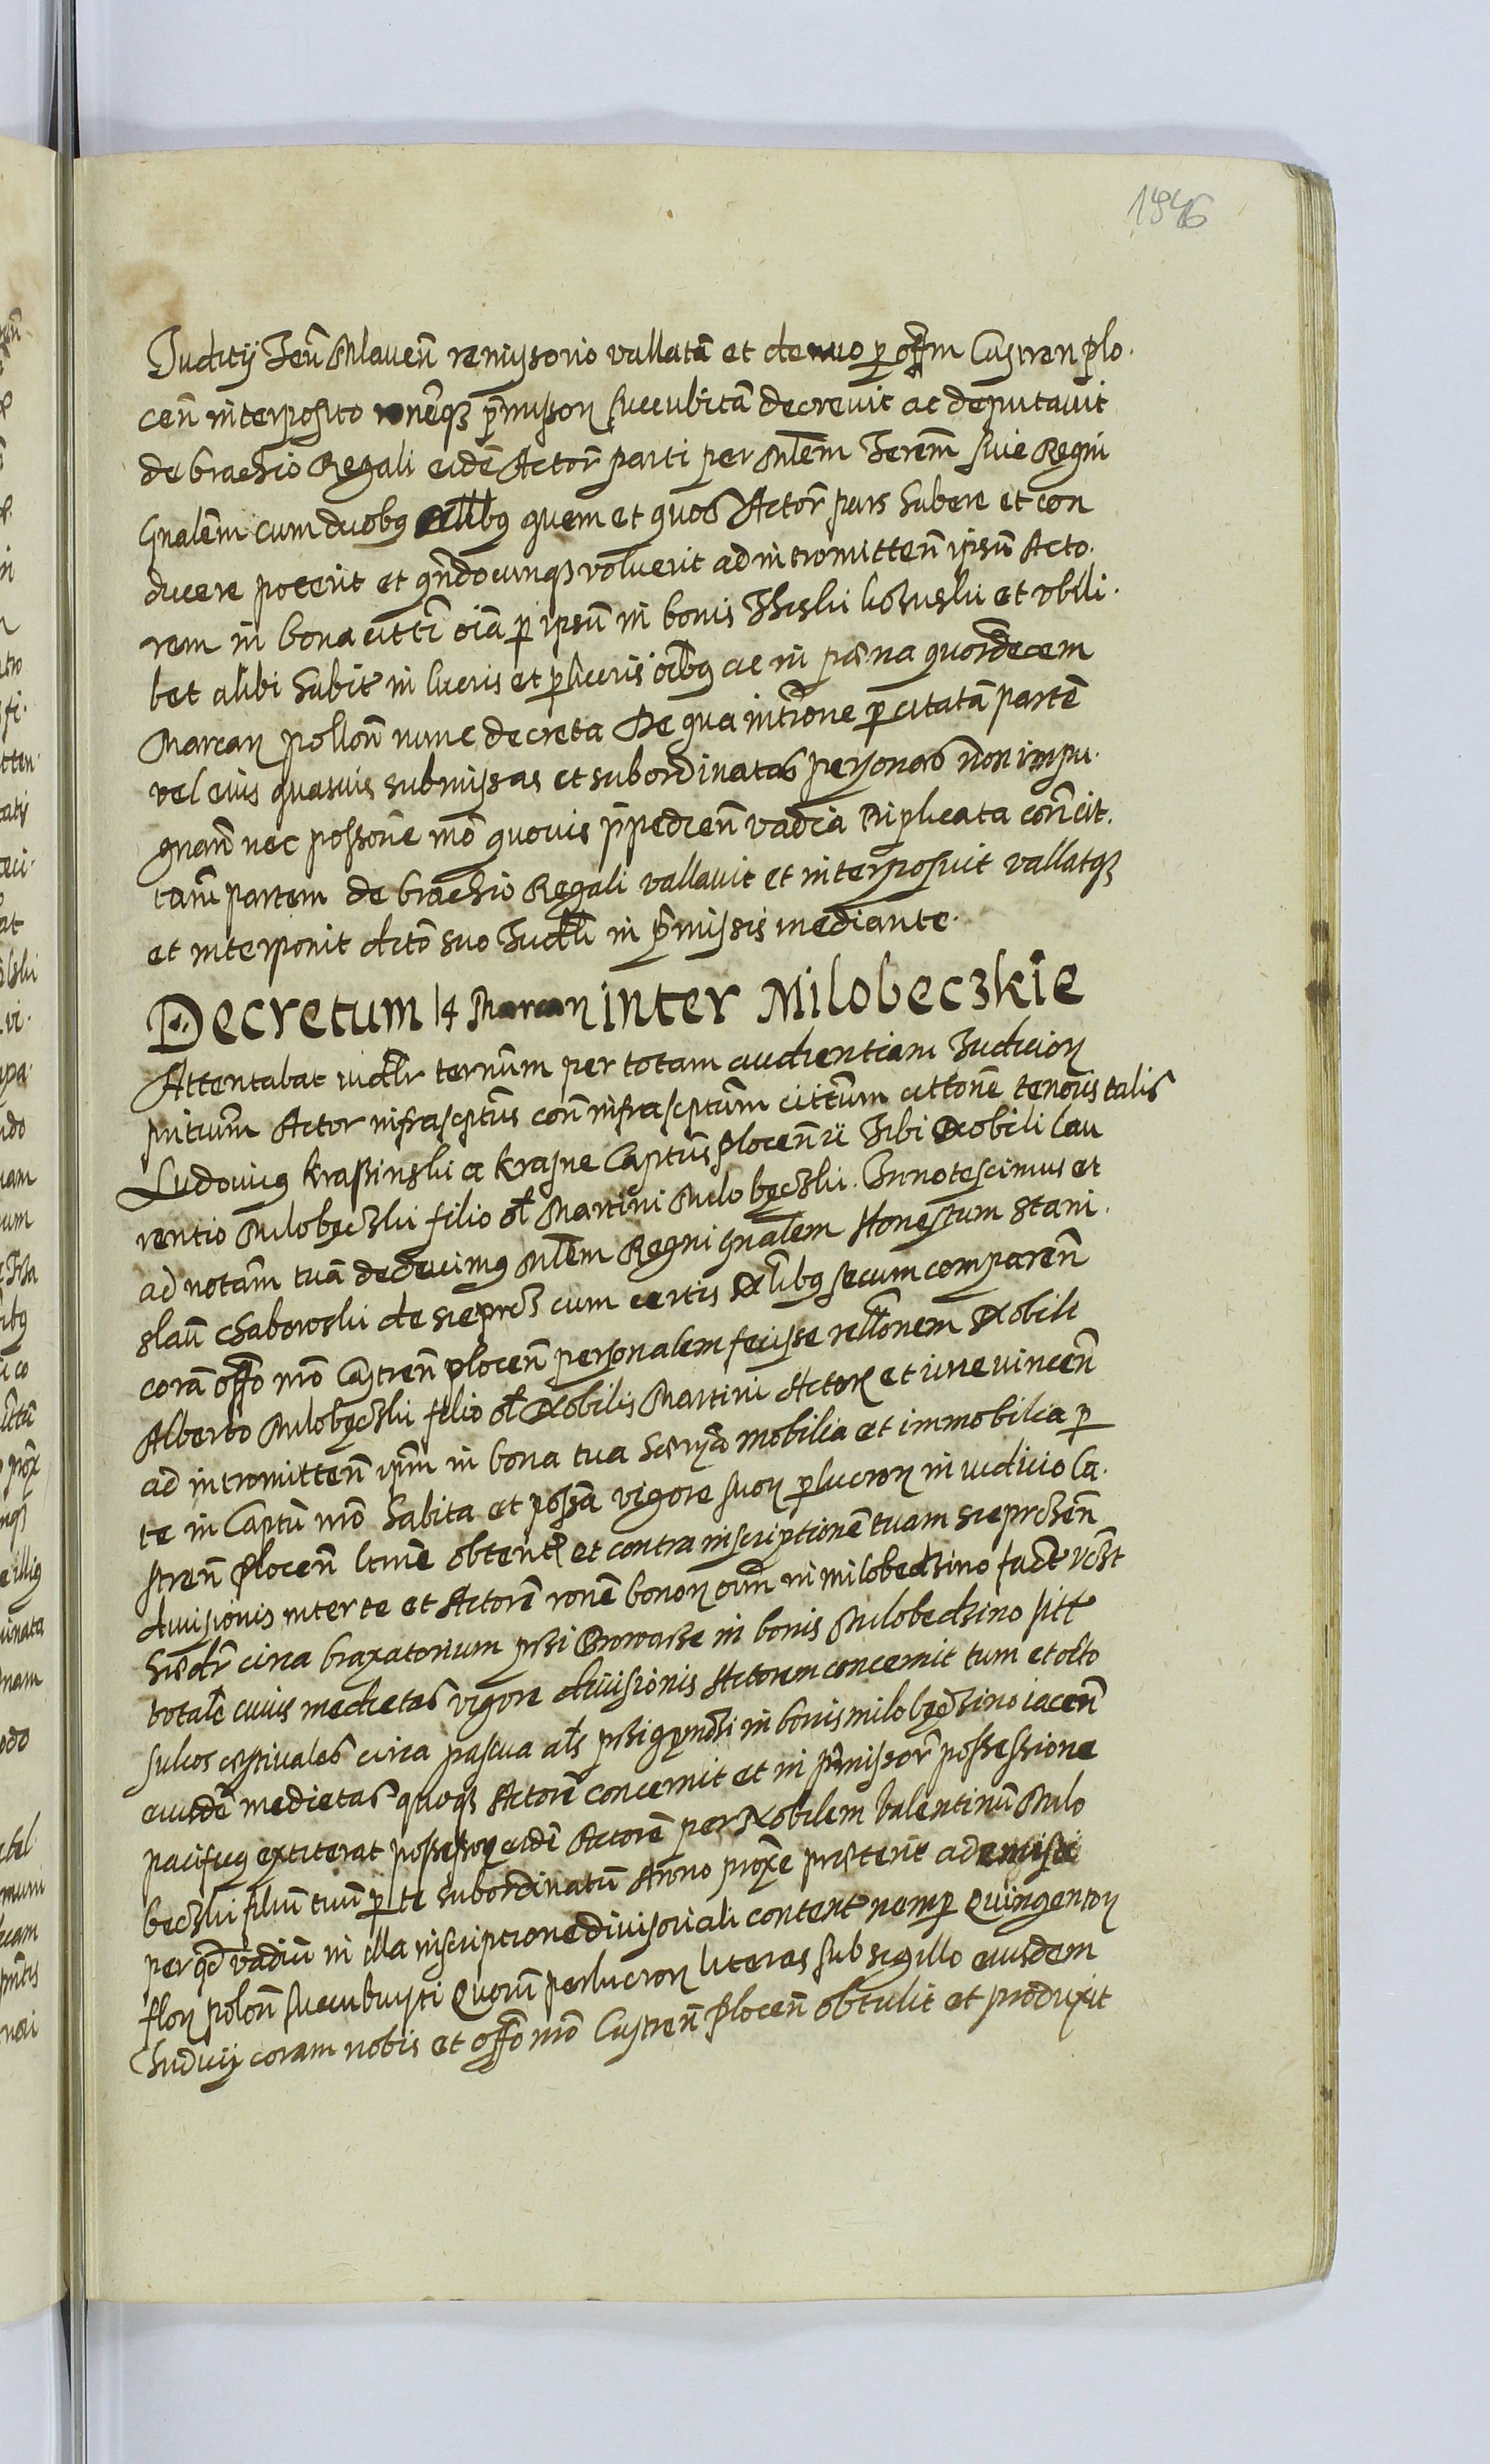 1946
Judicij Terr̃ Mlaueñ remissorio vallatã et denuo p offm Castren plo.
ceñ interposito rõneqз p̃missor succubitã decreuit ac deputauit
de brachio Regali eidẽ Actor̃ parti per Mlẽm Terrẽm siue Regni
Gnalẽm cum duobq Nlibq quem et quos Actor̃ pars habere et con
ducere poterit et qñdocunqз voluerit ad intromitteñ ipsũ Acto.
rem in bona citti oĩa p ipsũ in bonis et vbili.
bet alibi habit in lucris et plucris oĩbq ac in pæna quordecem
Marcar polloñ nunc decreta De qua intr̃one p citatã partẽ
vel eius quasuis submissas et subordinatas personas non impu.
gnañ nec possõne mõ quouis p̃pedieñ vadia triplicata coñ cit.
tam̃ partem de brachio Regali vallauit et interposuit vallatqз
et interponit dcto suo Judlí in p̃missis mediante.
Decretum 14 Marcar inter Milobeczkie
Attentabat iudlr ternũm per totam audientiam Judicior
pntiũm Actor infrascptũs coñ infrascptũm cittũm cittonẽ tenoris talis
Ludouicq Krassinski a Krasne Captũs Ploceñ Tibi Nobili Lau
rentio Milobęczki filio ol Martini Milobęczki. Innotescimus et
ad notam̃ tuã deducimq Mlẽm Regni Gnalem Honestum Stani.
slaũ Chaborski de Sieprcz cum certis Nlibq secum compareñ
corã offo nrõ Castreñ ploceñ personalem fecisse rellõnem Nobili
Alberto Milobęczki filio ol Nobilis Martini Actori et iure vinceñ
ad intromitteñ ipm̃ in bona tua mobilia et immobilia p
te in Captũ nrõ habita et possã vigore suor plucror in iudicio Ca.
streñ Ploceñ ltimẽ obtent et contra inscriptionẽ tuam Sieprczeñ
diuisionis inter te et Actorẽ ronẽ bonor oĩm in Milobedzino fact
circa braxatorium przi Browarze in bonis Milobedzino sitt
totalẽ cuius medietas vigore diuisionis Actorem concernit tum et octo
sulcos æstiuales circa pascua als przi in bonis milobędzino iaceñ
eiusdẽ medietas quoqз Actorẽ concernit et in p̃missor̃ possessione
pacificq extiterat possessor eidẽ Actorẽ per Nobilem Valentinũ Milo
beczki filiũ tuũ p te subordinatũ Anno proxẽ præterit ademisti
per qd vadiũ in illa inscriptione diuisoriali content nemp Quingentor
flor poloñ succubuisti Quorũ perlucror literas sub sigillo eiusdem
Judicij coram nobis et offo nrõ Castreñ Ploceñ obtulit et produxit